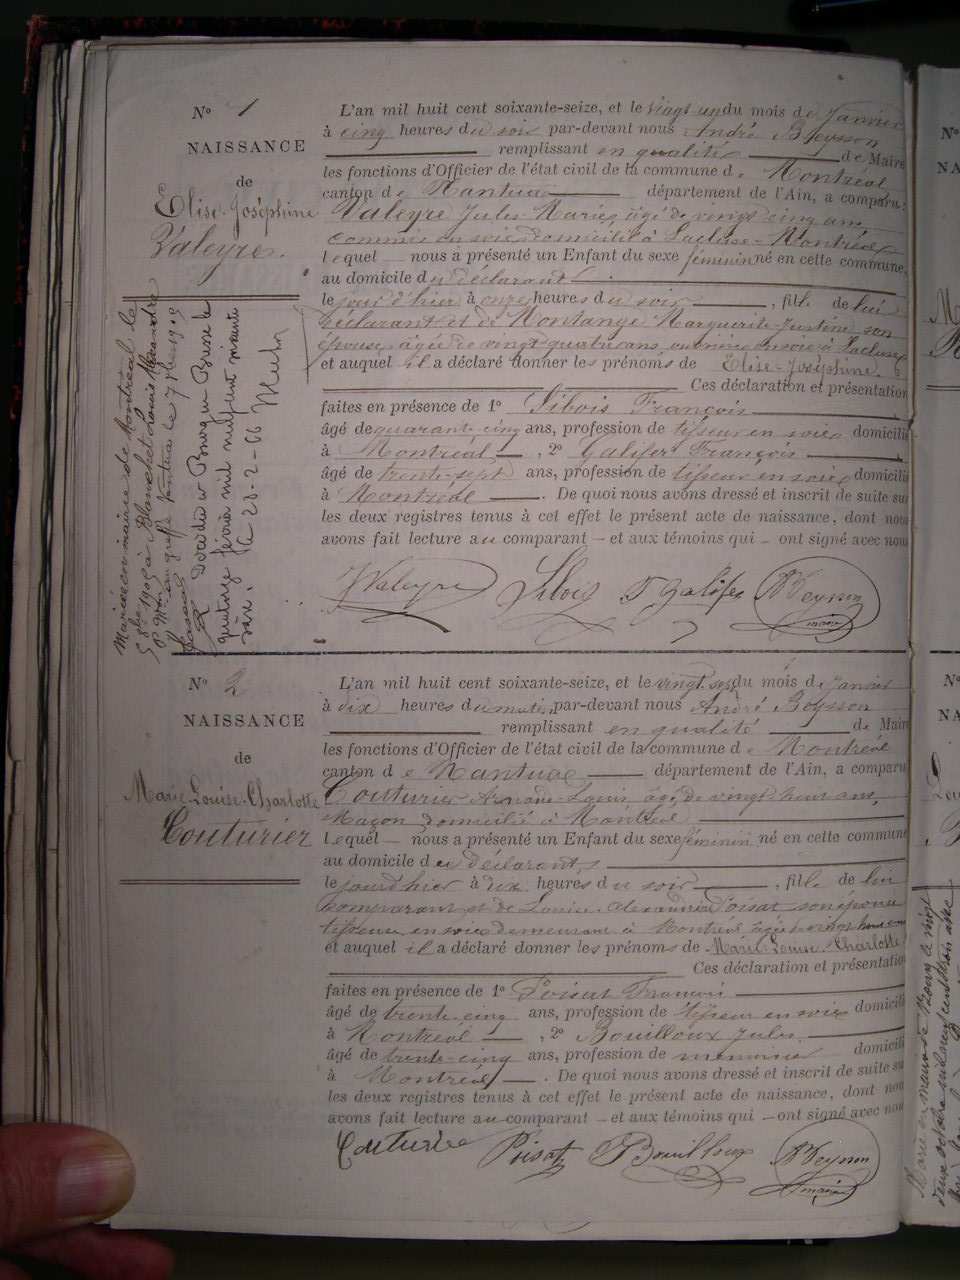 N° 1
NAISSANCE
de
Elise-Joséphine
Valeyre.
L'an mil huit cent soixante-seize, et le vingt un du mois de Janvier
à cinq heures du soir par-devant nous André Beysson
remplissant en qualité de Maire
les fonctions d'Officier de l'état civil de la commune de Montréal
canton de Nantua département de l'Ain, a comparu
Valeyre Jules-Marie, âgé de vingt cinq ans
commis en soies domicilié à Lacluse-Montréal
Lequel nous a présenté un Enfant du sexe féminin né en cette commune,
au domicile du déclarant
le jour d'hier à onze heures du soir, fille de lui
déclarant et de Montange Marguerite-Justine son
épouse âgée de vingt quatre ans, ouvrière en soie à Lacluse
et auquel il a déclaré donner les prénoms de Elise-Joséphine.
Ces déclaration et présentation
faites en présence de 1° Sibois François
âgé de quarante-cinq ans, profession de tisseur en soies domicilié
à Montréal, 2° Galifer François
âgé de trente-sept ans, profession de tisseur en soies domicilié
à Montréal. De quoi nous avons dressé et inscrit de suite su
les deux registres tenus à cet effet le présent acte de naissance, dont nous
avons fait lecture au comparant – et aux témoins qui – ont signé avec nous
JValeyre Sibois F Galifer
maire
Mariée en mairie de Montréal le
1909 à Blanchet Louis
au greffe Nantua le 7 1909
Décédée à Bourg en Bresse le
quatorze février mil neuf cent soixante
six. Le 26-2-66
N° 2
NAISSANCE
de
Marie-Louise-Charlotte
Couturier
L'an mil huit cent soixante-seize, et le vingt-sept du mois de Janvier
à dix heures du matin, par-devant nous André Beysson
remplissant en qualité de Maire
les fonctions d'Officier de l'état civil de la commune de Montréal
canton de Nantua, département de l'Ain, a comparu
Couturier Louis, âgé de vingt huit ans,
Maçon domicilié à Montréal
Lequel nous a présenté un Enfant du sexe féminin né en cette commune
au domicile du déclarant,
le jour d'hier à dix heures du soir, fille de lui
comparant et de Louise-Alexandrine Poisat son épouse
tisseuse en soies demeurant à Montréal âgée de vingt huit ans
et auquel il a déclaré donner les prénoms de Marie-Louise-Charlotte
Ces déclaration et présentation
faites en présence de 1° Poisat François
âgé de trente-cinq ans, profession de tisseur en soies domicilié
à Montréal, 2° Bouilloux Jules
âgé de trente-cinq ans, profession de menuisier domicilié
à Montréal. De quoi nous avons dressé et inscrit de suite su
les deux registres tenus à cet effet le présent acte de naissance, dont nou
avons fait lecture au comparant – et aux témoins qui – ont signé avec nou
Couturier Poisat Bouilloux
maire